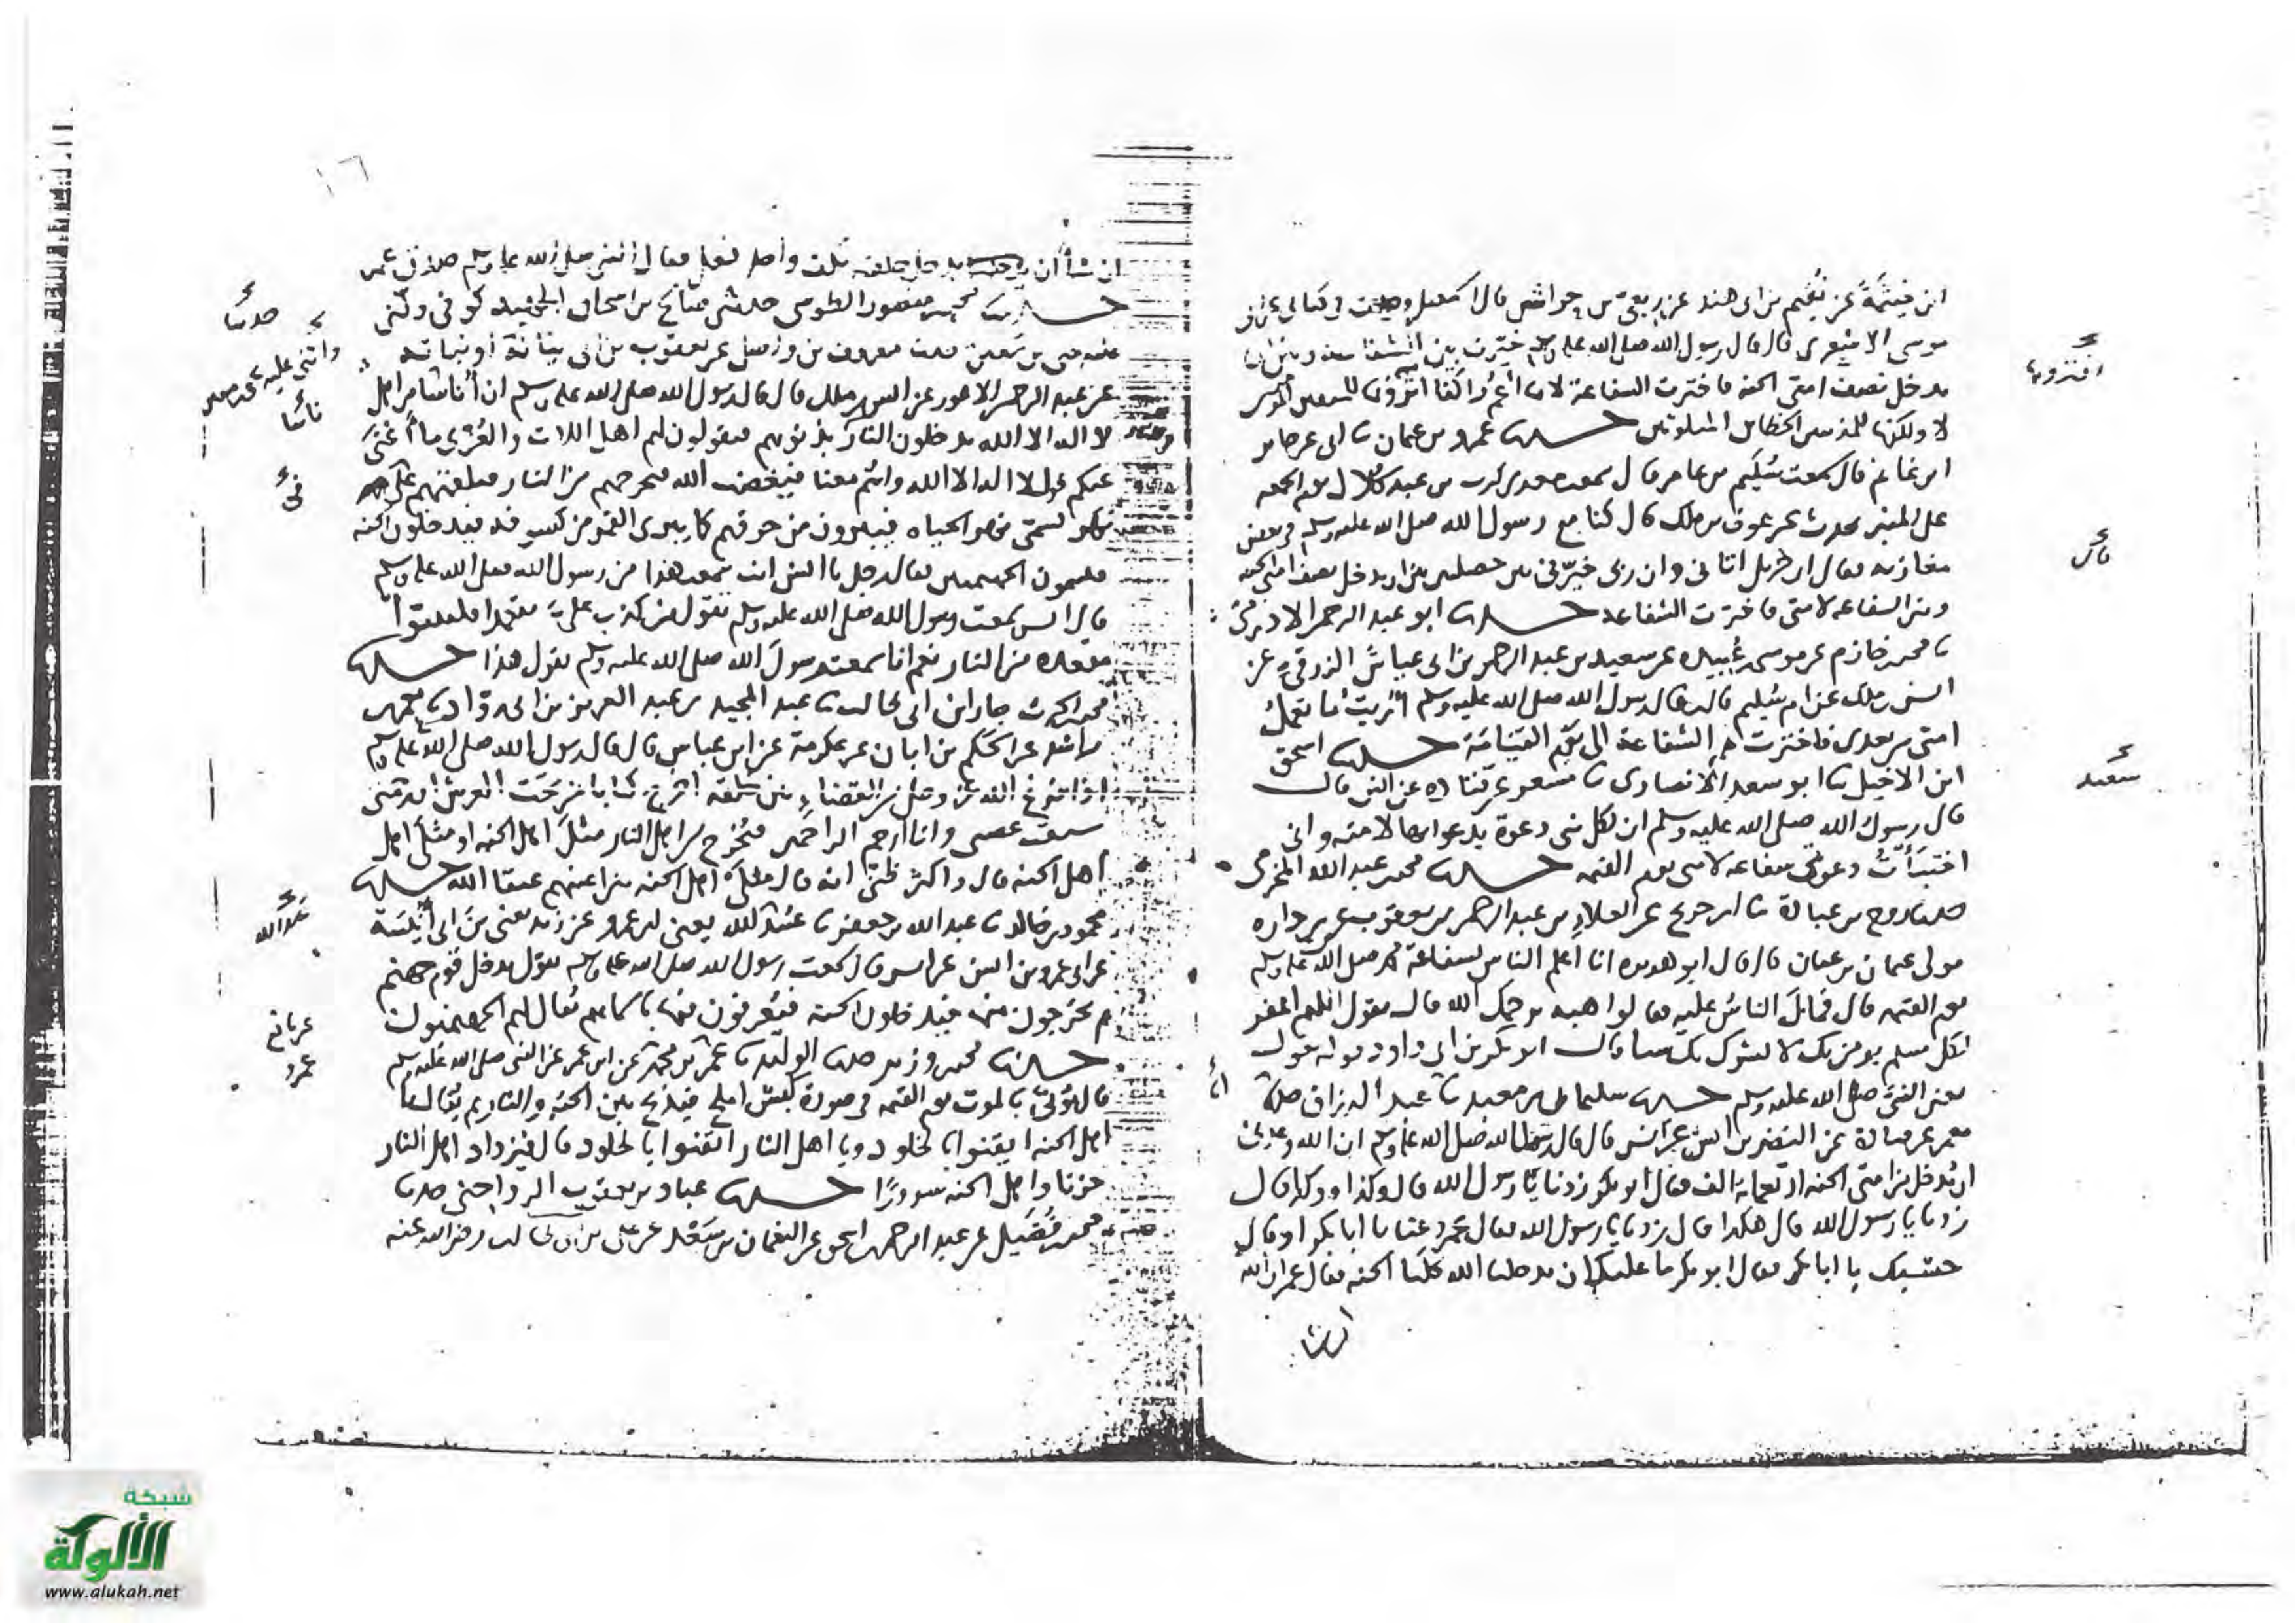 ابن خيثمة عن نعيم بن ابى هند عن ربعى بن حراش قال اسمعيل وجدت فى كتابى عن ابى
موسى الاشعرى قال قال رسول الله صلى الله عليه وسلم خيرت بين الشفاعه وبين ان
يدخل نصف امتى الجنه فاخترت الشفاعة لانها اعم واكفا اترونها للمتقين
لا ولكنها للمذنبين الخطائين المتلوثين حدثنا عمرو بن عثمان نا ابى عن جابر
ابن غانم قال سمعت سليم بن عامر قال سمعت معدى كرب بن عبد كلال يوم الجمعه
على المنبر يحدث عن عوف بن ملك قال كنا مع رسول الله صلى الله عليه وسلم فى بعض
مغازيه فقال ان جبريل اتانى وان ربى خيرنى بين خصلتين بين ان يدخل نصف امتى الجنه
وبين الشفاعه لامتى فاخترت الشفاعه حدثنا ابو عبد الرحمن الاذرمى
نا محمد خازم عن موسى عبيده عن سعيد بن عبد الرحمن بن ابى عياش الزرقى عن
انس بن ملك عن ام سليم قالت قال رسول الله صلى الله عليه وسلم اُريت ما تعمل
امتى من بعدى فاخترت لهم الشفاعة الى يوم القيامة حدثنا اسحق
ابن الاخيل نا ابو سعد الانصارى نا مسعر عن قتاده عن انس قال
قال رسول الله صلى الله عليه وسلم ان لكل نبى دعوة يدعوا بها لامته وانى
اختبأت دعوتى شفاعه لامتى يوم القيمه حدثنا محمد عبد الله المخرمى
حدثنا روح بن عبادة نا ابن جريج عن العلاء بن عبد الرحمن بن يعقوب عن بن داره
مولى عثمان بن عفان قال قال ابو هريره انا اعلم الناس بشفاعة محمد صلى الله عليه وسلم
يوم القيمه قال الناس عليه فقالوا هيه يرحمك الله قال يقول اللهم اغفر
لكل مسلم يومن بك لا يشرك بك شيا قال ابو بكر بن ابى داود قوله يقول
يعنى النبى صلى الله عليه وسلم حدثنا سليمان بن معبد نا عبد الرزاق حدثنا
معمر عن قتادة عن النضر بن انس عن انس قال قال رسول الله صلى الله عليه وسلم ان الله وعدنى
ان يدخل من امتى الجنه اربعمايه الف فقال ابو بكر زدنا يا رسول الله قال وكذا وكذا قال
زدنا يا رسول الله قال هكذا قال زدنا يا رسول الله فقال عمر دعنا يا ابا بكر او قال
حسبك يا ابا بكر فقال ابو بكر ما عليك ان يدخلنا الله كلنا الجنه فقال عمر ان الله
ان شا
افترونها
سعيد
١٦
ان شا ان يدخل خلقه بكف واحد فعل فقال النبى صلى الله عليه وسلم صدق عمر
حدثنا محمد منصور الطوسى حدثنى صالح بن اسحاق الجهبذ كوفى ودلنى
عليه يحيى بن معين حدثنا معروف بن واصل عن يعقوب بن ابى نباتة او نباته
عن عبد الرحمن الاعور عن انس بن ملك قال قال رسول الله صلى الله عليه وسلم ان أناسا من اهل
لا اله الا الله يدخلون النار بذنوبهم فيقولون لهم اهل اللات والعزى ما أغنى
عنكم قول لا اله الا الله وانتم معنا فيغضب الله فيخرجهم من النار فيلقيهم
نهر يسمى نهر الحياه فيبرون من حرقهم كما يبرى القمر من كسوفه فيدخلون الجنه
فيسمون الجهنميين فقال رجل يا انس انت سمعت هذا من رسول الله صلى الله عليه وسلم
قال انس سمعت رسول الله صلى الله عليه وسلم يقول من كذب على متعمدا فليتبوأ
مقعده من النار نعم انا سمعت رسول الله صلى الله عليه وسلم يقول هذا حدثنا
محمد نا عبد المجيد بن عبد العزيز بن ابى رواد نا معمر
بن راشد عن الحكم بن ابان عن عكرمة عن ابن عباس قال قال رسول الله صلى الله عليه وسلم
اذا فرغ الله عز وجل من القضاء بين خلقه اخرج كتابا من تحت العرش ان رحمتى
سبقت غضبى وانا ارحم الراحمين فيخرج من اهل النار مثل اهل الجنه او مثلى اهل
اهل الجنه قال واكثر ظنى انه قال مثلى اهل الجنه بين اعينهم عتقا الله حدثنا
محمود بن خالد نا عبد الله بن جعفر نا عبيد الله يعنى ابن عمرو عن زيد يعنى بن ابى أنيسة
عن ابى عمرو بن انس عن انس قال سمعت رسول الله صلى الله عليه وسلم يقول يدخل قوم جهنم
ثم يخرجون منها فيدخلون الجنه فيعرفون فيها باسمائهم يقال لهم الجهنميون
حدثنا محمد وزير حدثنا الوليد نا عمر بن محمد عن ابن عمر عن النبى صلى الله عليه وسلم
قال يؤتى بالموت يوم القيمه فى صورة كبش املح فيذبح بين الجنه والنار ثم يقال يا
اهل الجنه ايقنوا بالخلود ويا اهل النار ايقنوا بالخلود قال فيزداد اهل النار
حزنا واهل الجنه سرورا حدثنا عباد بن يعقوب الرواجنى حدثنا
محمد فضيل عن عبد الرحمن اسحق عن النعمان بن سعد عن على بن ابى طالب رضى الله عنه
حدثنا
واثنى عليه يحيى بن معين
ناسا
فى
شبكة
الألوكة
www.alukah.net